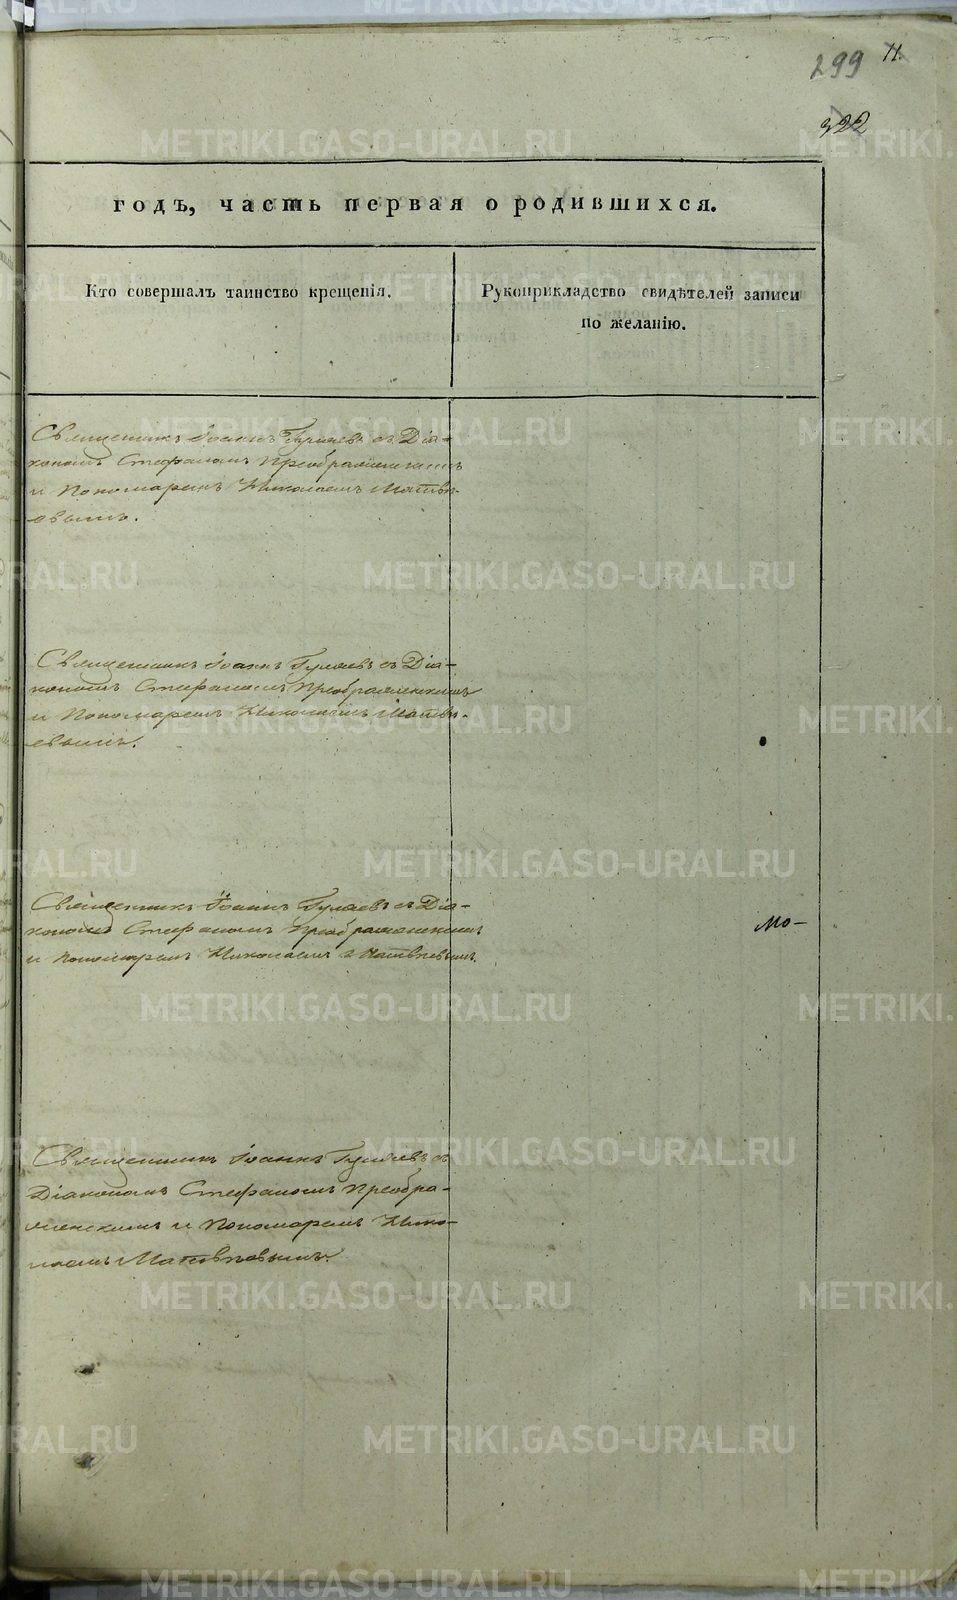 299 11.
322
годъ, часть первая о родившихся.
Кто совершалъ таинство крещенія.
Рукоприкладство свидѣтелей записи
по желанію.
Священникъ Іоаннъ Гуляевъ съ Діа-
кономъ Стефаномъ Преображенскимъ
и Пономаремъ Николаемъ Матвѣ-
евымъ.
Священникъ Іоаннъ Гуляевъ съ Діа-
кономъ Стефаномъ Преображенскимъ
и Пономаремъ Николаемъ Матвѣ-
евымъ.
Священникъ Іоаннъ Гуляевъ съ Діа-
кономъ Стефаномъ Преображенскимъ
и Пономаремъ Николаемъ Матвѣевымъ.
Мо-
Священникъ Іоаннъ Гуляевъ съ
Діакономъ Стефаномъ Преобра-
женскимъ и Пономаремъ Нико-
лаемъ Матвѣевымъ.
METRIKI.GASO-URAL.RU